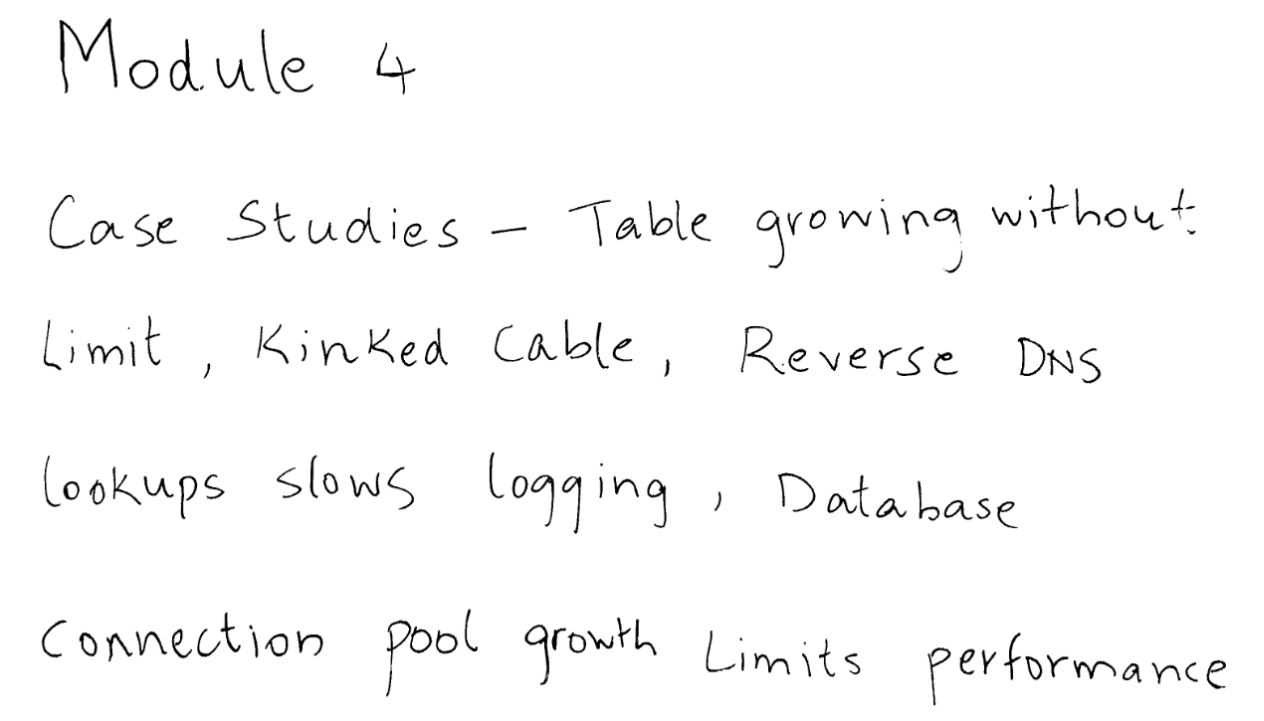 Module 4
Case Studies - Table growing without
Limit, Kinked Cable, Reverse DNS
lookups slows logging, Database
connection pool growth Limits performance